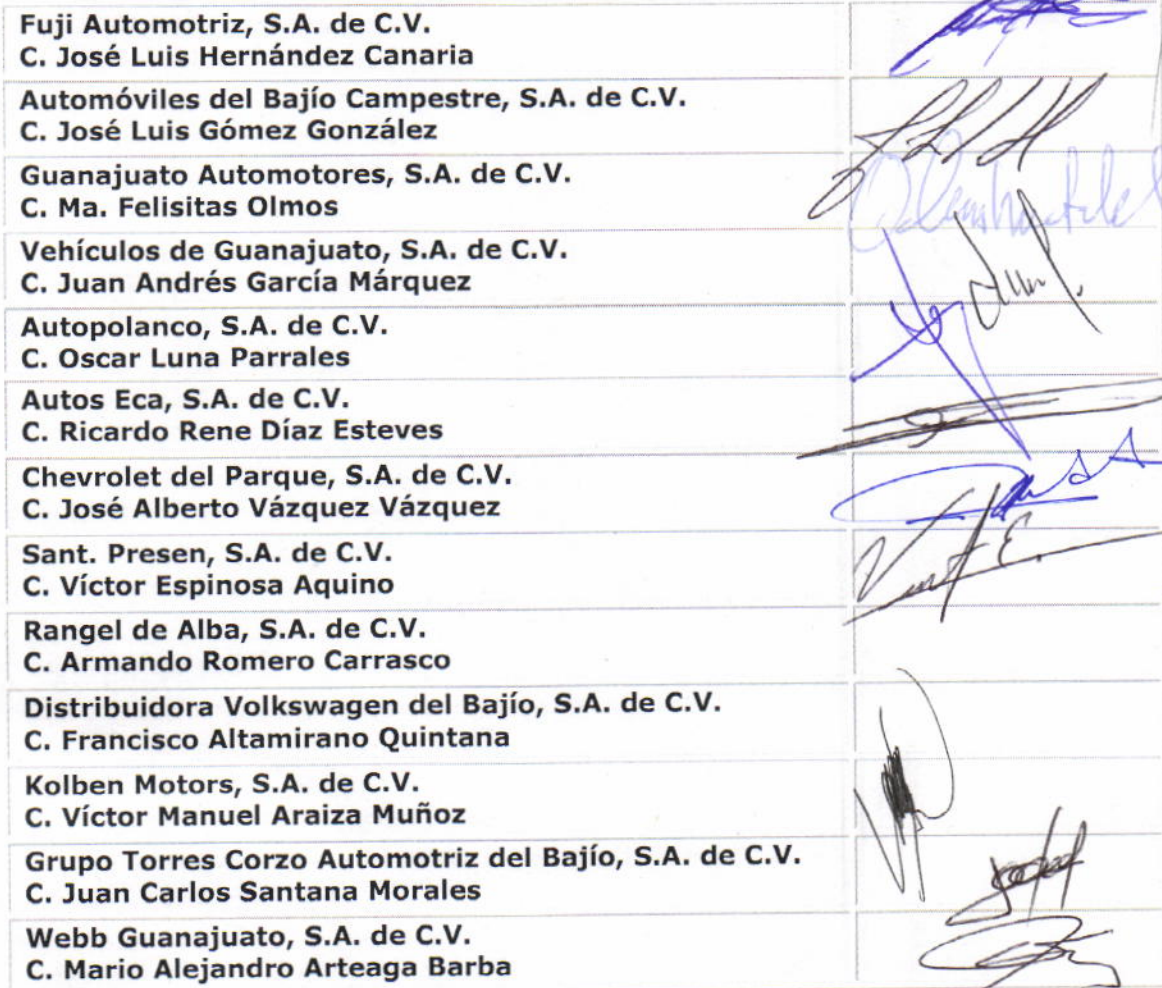 Fuji Automotriz, S.A. de C.V.
C. José Luis Hernández Canaria
Automóviles del Bajío Campestre, S.A. de C.V.
C. José Luis Gómez González
Guanajuato Automotores, S.A. de C.V.
C. Ma. Felisitas Olmos
Vehículos de Guanajuato, S.A. de C.V.
C. Juan Andrés García Márquez
Autopolanco, S.A. de C.V.
C. Oscar Luna Parrales
Autos Eca, S.A. de C.V.
C. Ricardo Rene Díaz Esteves
Chevrolet del Parque, S.A. de C.V.
C. José Alberto Vázquez Vázquez
Sant. Presen, S.A. de C.V.
C. Víctor Espinosa Aquino
Rangel de Alba, S.A. de C.V.
C. Armando Romero Carrasco
Distribuidora Volkswagen del Bajío, S.A. de C.V.
C. Francisco Altamirano Quintana
Kolben Motors, S.A. de C.V.
C. Víctor Manuel Araiza Muñoz
Grupo Torres Corzo Automotriz del Bajío, S.A. de C.V.
C. Juan Carlos Santana Morales
Webb Guanajuato, S.A. de C.V.
C. Mario Alejandro Arteaga Barba